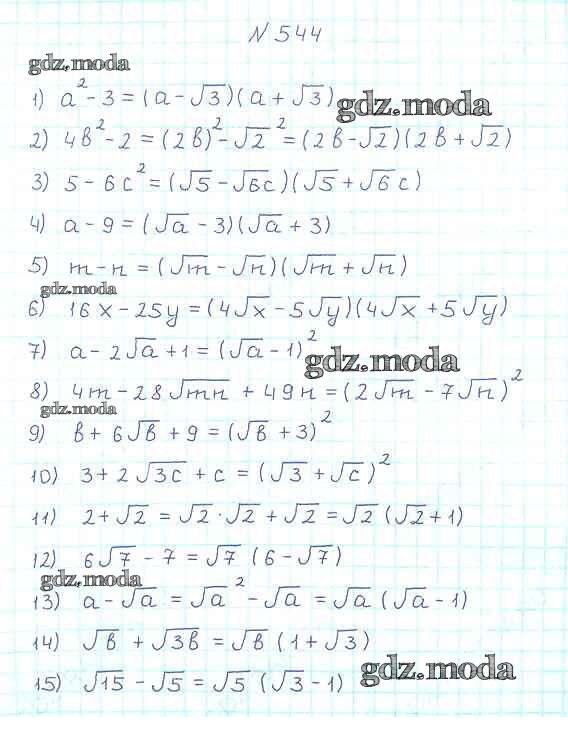 N 544
gdz.moda
1) a² - 3 = (a - √3)(a + √3)
gdz.moda
2) 4в² - 2 = (2в)² - √2² = (2в - √2)(2в + √2)
3) 5 - 6c² = (√5 - √6c)(√5 + √6c)
4) a - 9 = (√a - 3)(√a + 3)
5) m - n = (√m - √n)(√m + √n)
gdz.moda
6) 16x - 25y = (4√x - 5√y)(4√x + 5√y)
7) a - 2√a + 1 = (√a - 1)²
gdz.moda
8) 4m - 28√mn + 49n = (2√m - 7√n)²
gdz.moda
9) в + 6√в + 9 = (√в + 3)²
10) 3 + 2√3c + c = (√3 + √c)²
11) 2 + √2 = √2 · √2 + √2 = √2 (√2 + 1)
12) 6√7 - 7 = √7 (6 - √7)
gdz.moda
13) a - √a = √a² - √a = √a (√a - 1)
14) √в + √3в = √в (1 + √3)
15) √15 - √5 = √5 (√3 - 1)
gdz.moda